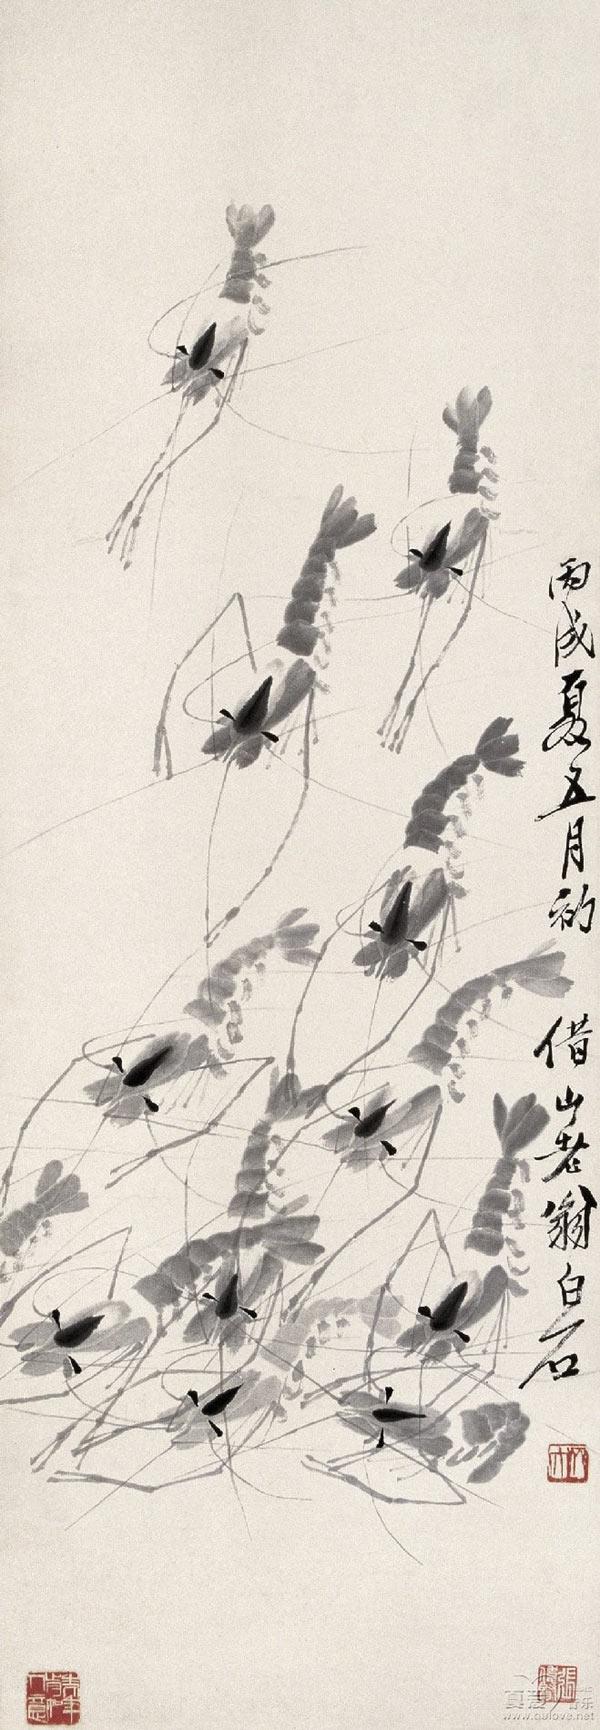 丙戌夏五月初 借山老翁白石
www.qulove.net